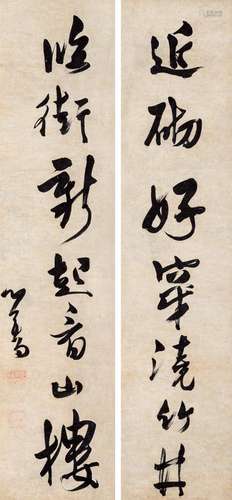 近砌好穿澆竹井
臨街新起看山樓
心畬